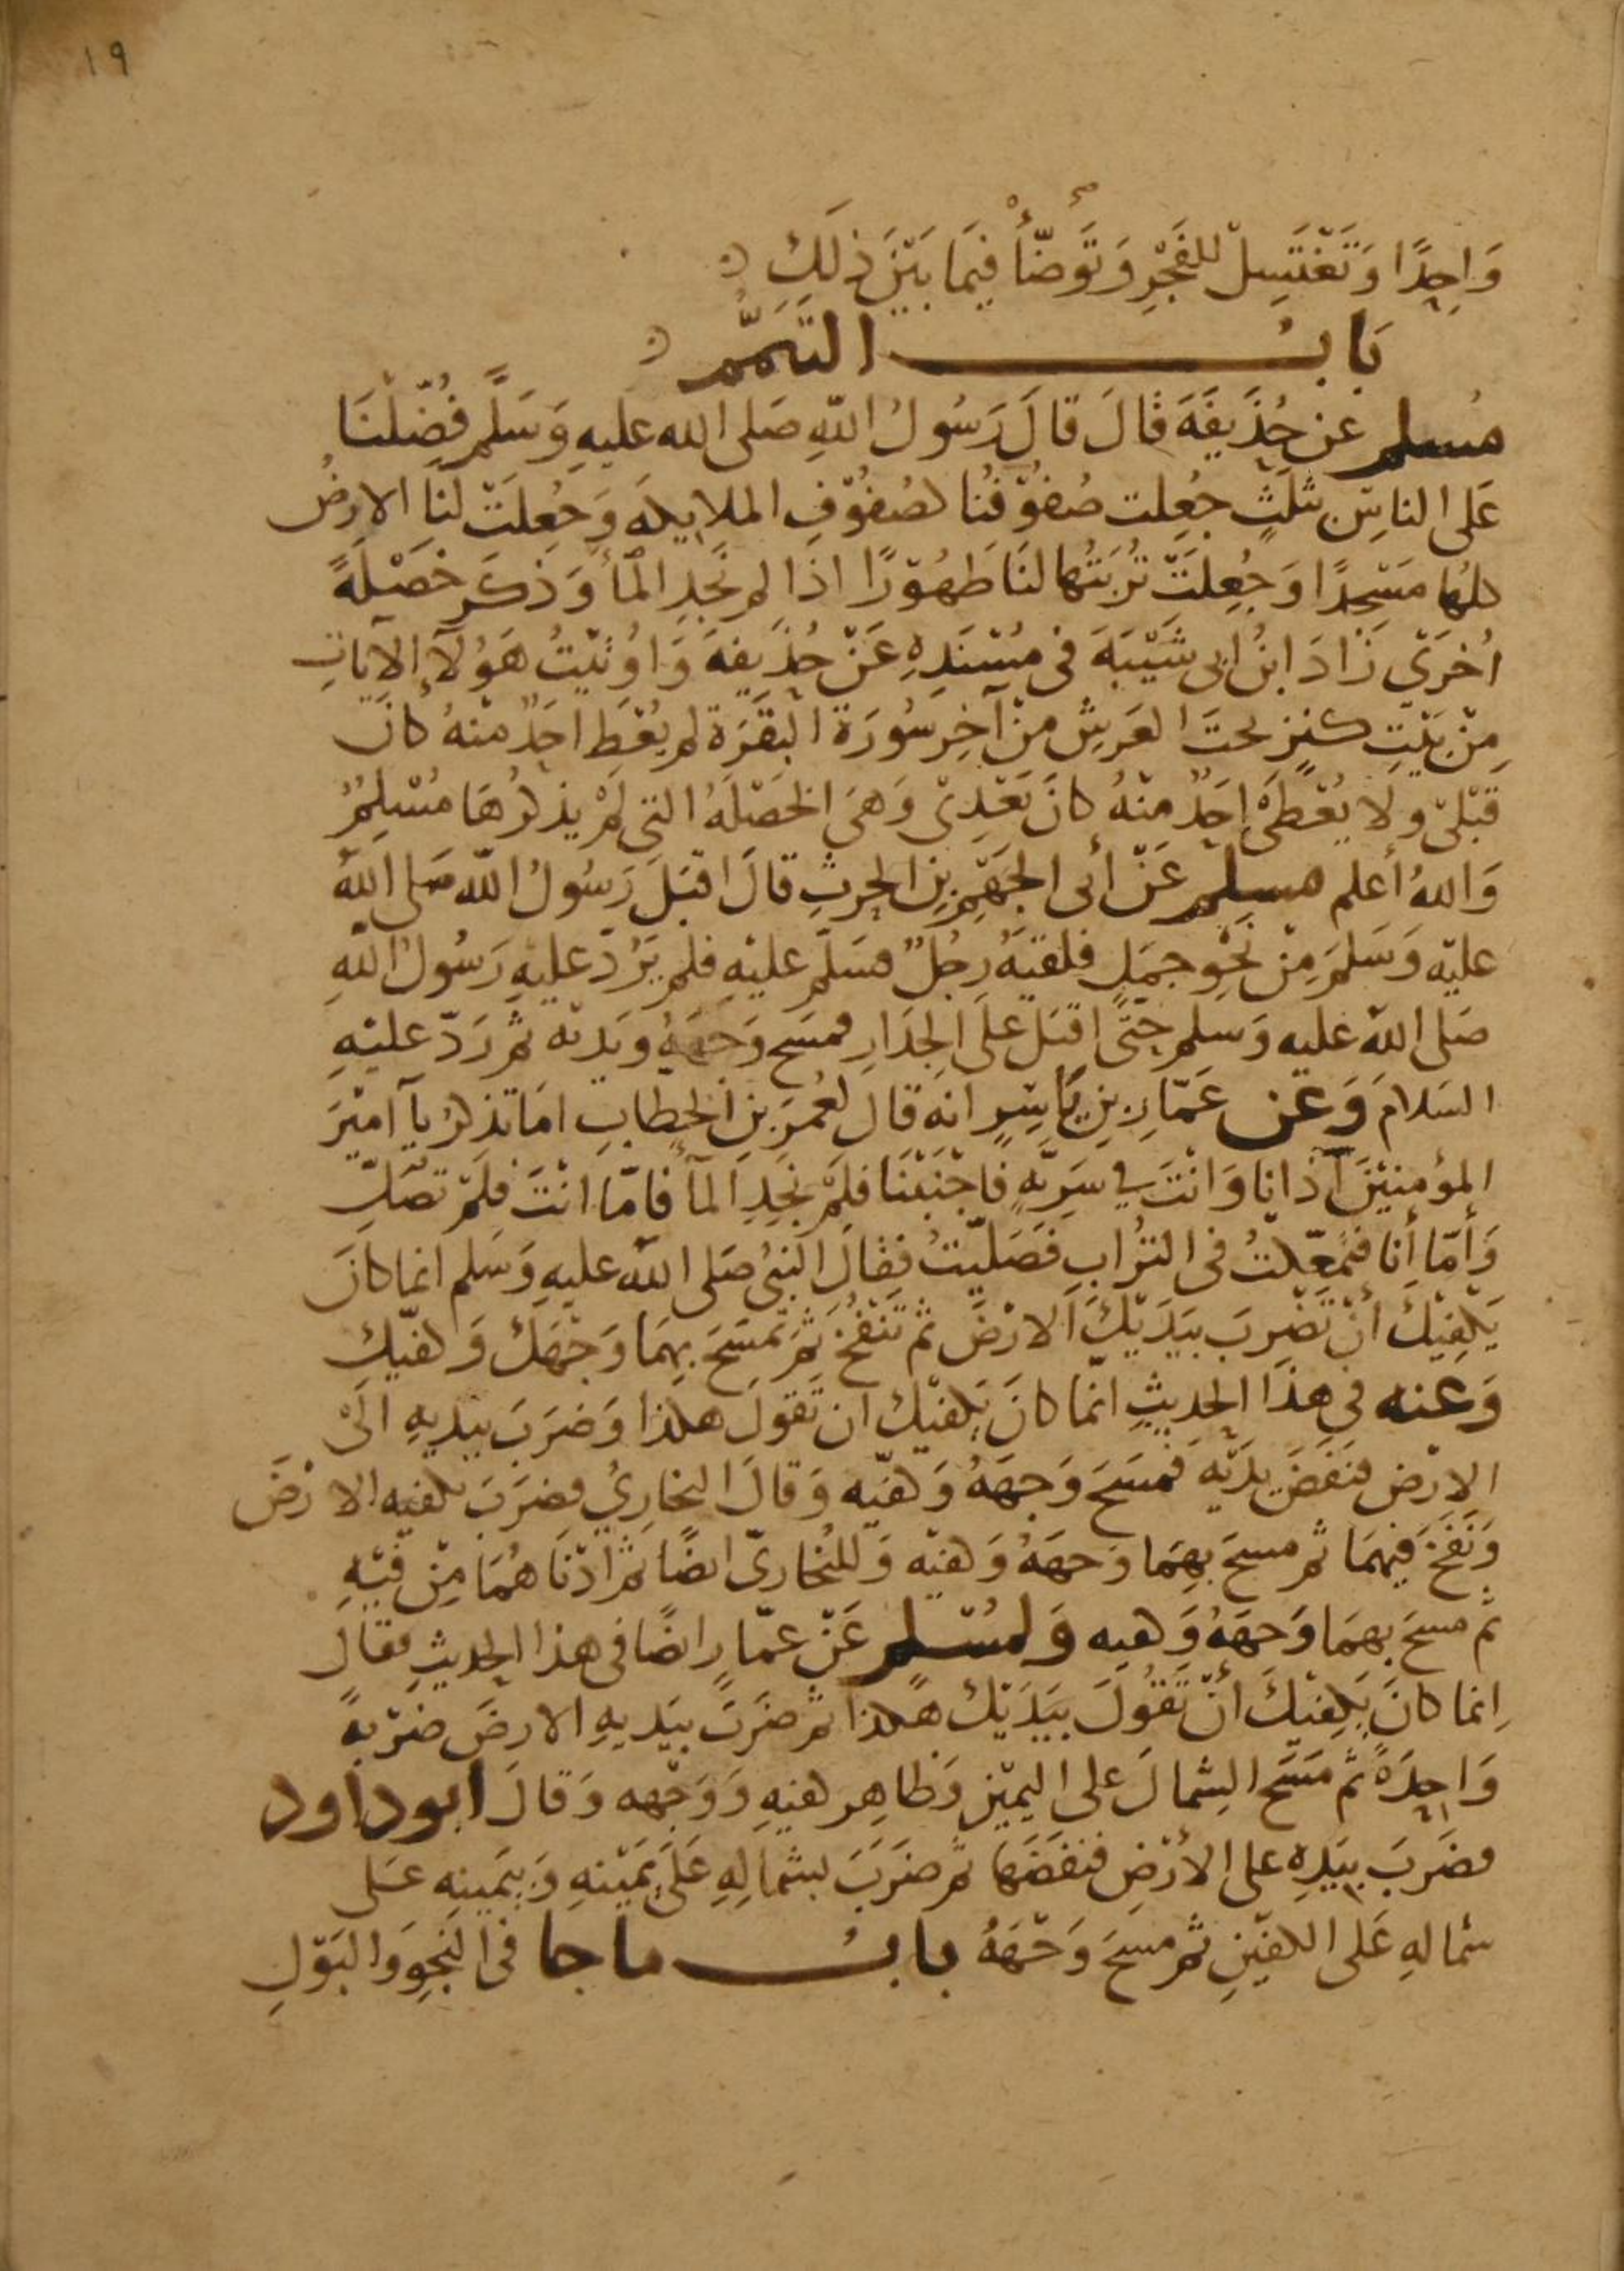 ١٩
وَاحِدًا وَتَغْتَسِلْ للفَجْرِ وَتَوَضّأْ فِيمَا بَيْنَ ذلَكِ
بَابُ التَيَمُّمِ
مُسلم عن حُذَيفَةَ قالَ قالَ رَسُولُ اللّهِ صَلى الله عليهِ وَسَلَّم فُضِّلْنَا
عَلى الناسِ بثلَثٍ جعُلِت صُفوُفنُا كصُفوُفِ الملايِكةِ وَجُعِلَتْ لنَا الارضُ
كلهُا مَسْجِدًا وَجُعِلَتْ تُرْبَتُها لنَا طَهُوْرًا اذَا لم نَجَدِ المأَ وَذكَرَ خَصْلَةً
اُخرَيّ زَادَ ابنُ ابى شَيْبَةَ فى مسُنَدِهِ عَنْ حُذَيفةَ وَاوُتيْتُ هَوُلآءِ الآيَاتِ
مِنْ بَيْتِ كنزٍ تحتَ العَرشِ مِنْ آخِر سُورَة البَقَرَة لم يُعْطَ احَدٌ منْهُ كانَ
قبْلىِ ولا يُعْطَىْ احَدٌ منْهُ كانَ بَعْدِىْ وَهىَ الخَصْلَةُ التىِ لَمْ يذكرُهَا مُسْلِمٌ
وَاللهُ أعلم مسلم عَنْ أبى الجَهْمِ بنِ الحرثِ قالَ اقبَلَ رَسُولُ اللّه صَلى اللهُ
عليْه وَسَلمَ مِنْ نَحْوِ جمَلٍ فلقيَهُ رجُلٌ فسَلّم عليْهِ فلم يَرُدّ عليْهِ رَسُولُ اللّهِ
صَلى اللهُ عليهِ وَسلم حتّى اقبَلَ علَى الجدَارِ فمسَح وَجهَهُ ويَديْه ثم رَدّ عليْهِ
السَلامَ وَعَن عَمّارِ بنِ يَاسِرٍ انهَ قالَ لعُمَرَ بنِ الخطابِ امَا تذكرُ يآ امَيْرَ
المؤمنيْنَ اذ انا وَانْتَ فى سَرِيّةٍ فاجْنَبْنَا فلَمْ نجَدِ المآَ فامّا انْتَ فلَمْ تصَلّ
وَأمّا أنا فتَمعّكتُ فى الترُابِ فَصَليّتُ فقَالَ النبىُ صَلى اللهُ عليهِ وَسَلم انما كانَ
يَكفيْكَ أنْ تَضْرِبَ بيَدَيْكَ الارْضَ ثم تَنْفُخَ ثمَ تَمْسَحَ بِهمَا وَجْهَكَ وَكفيّكِ
وَعنه فى هذَا الحدِيثِ انمّا كانَ يَكفيْكَ ان تَقولَ هكذا وَضرَبَ بيَديهِ الَىْ
الارْضِ فنَفَضَ يدَيْهِ فمَسَحَ وَجهَهُ وَكفيّه وَقالَ البخارِيُ فضرَبَ بكفيهِ الارْضَ
وَنَفخَ فيهمَا ثم مسحَ بهِمَا وَجهَهُ وَكفيّه وَللبُخارىّ ايضًا ثمَ ادْنَاهُمَا مِنْ فيْهِ
ثم مسحَ بهمَا وَجهَهُ وَكفيه وَلمُسْلم عَنْ عمّارٍ ايضًا فى هذا الحديثِ فقالَ
اِنما كانَ يَكِفيْكَ أنْ تَقوُلَ بيَدَيْكَ هَكذا ثم ضرَبَ بيَديهِ الارضَ ضرْبةً
وَاحِدَةً ثم مَسَحَ الشمالَ على اليميْنِ وَظاهِر كفيهِ وَوَجْهه وَقالَ ابو داود
فضَرَبَ بيَدِهِ على الأرْضِ فنفَضَها ثم ضرَبَ بشمَالِهِ عَلَى يَمَيْنهِ وَبيَمينهِ عَلى
شمالهِ عَلى الكفيّنِ ثم مسحَ وَجْهَهُ بابُ ماجا فى النَجِوِ وَالبَوْلِ